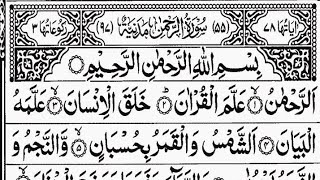 اٰیَاتُهَا ۷۸ (۵۵) سُوْرَةُ الرَّحْمٰنِ مَدَنِیَّةٌ (۹۷) رُکُوْعَاتُهَا ۳
بِسْمِ اللّٰهِ الرَّحْمٰنِ الرَّحِیْمِ
اَلرَّحْمٰنُ ۱ عَلَّمَ الْقُرْاٰنَ ۲ خَلَقَ الْاِنْسَانَ ۳ عَلَّمَهُ
الْبَیَانَ ۴ اَلشَّمْسُ وَالْقَمَرُ بِحُسْبَانٍ ۵ وَّالنَّجْمُ وَ